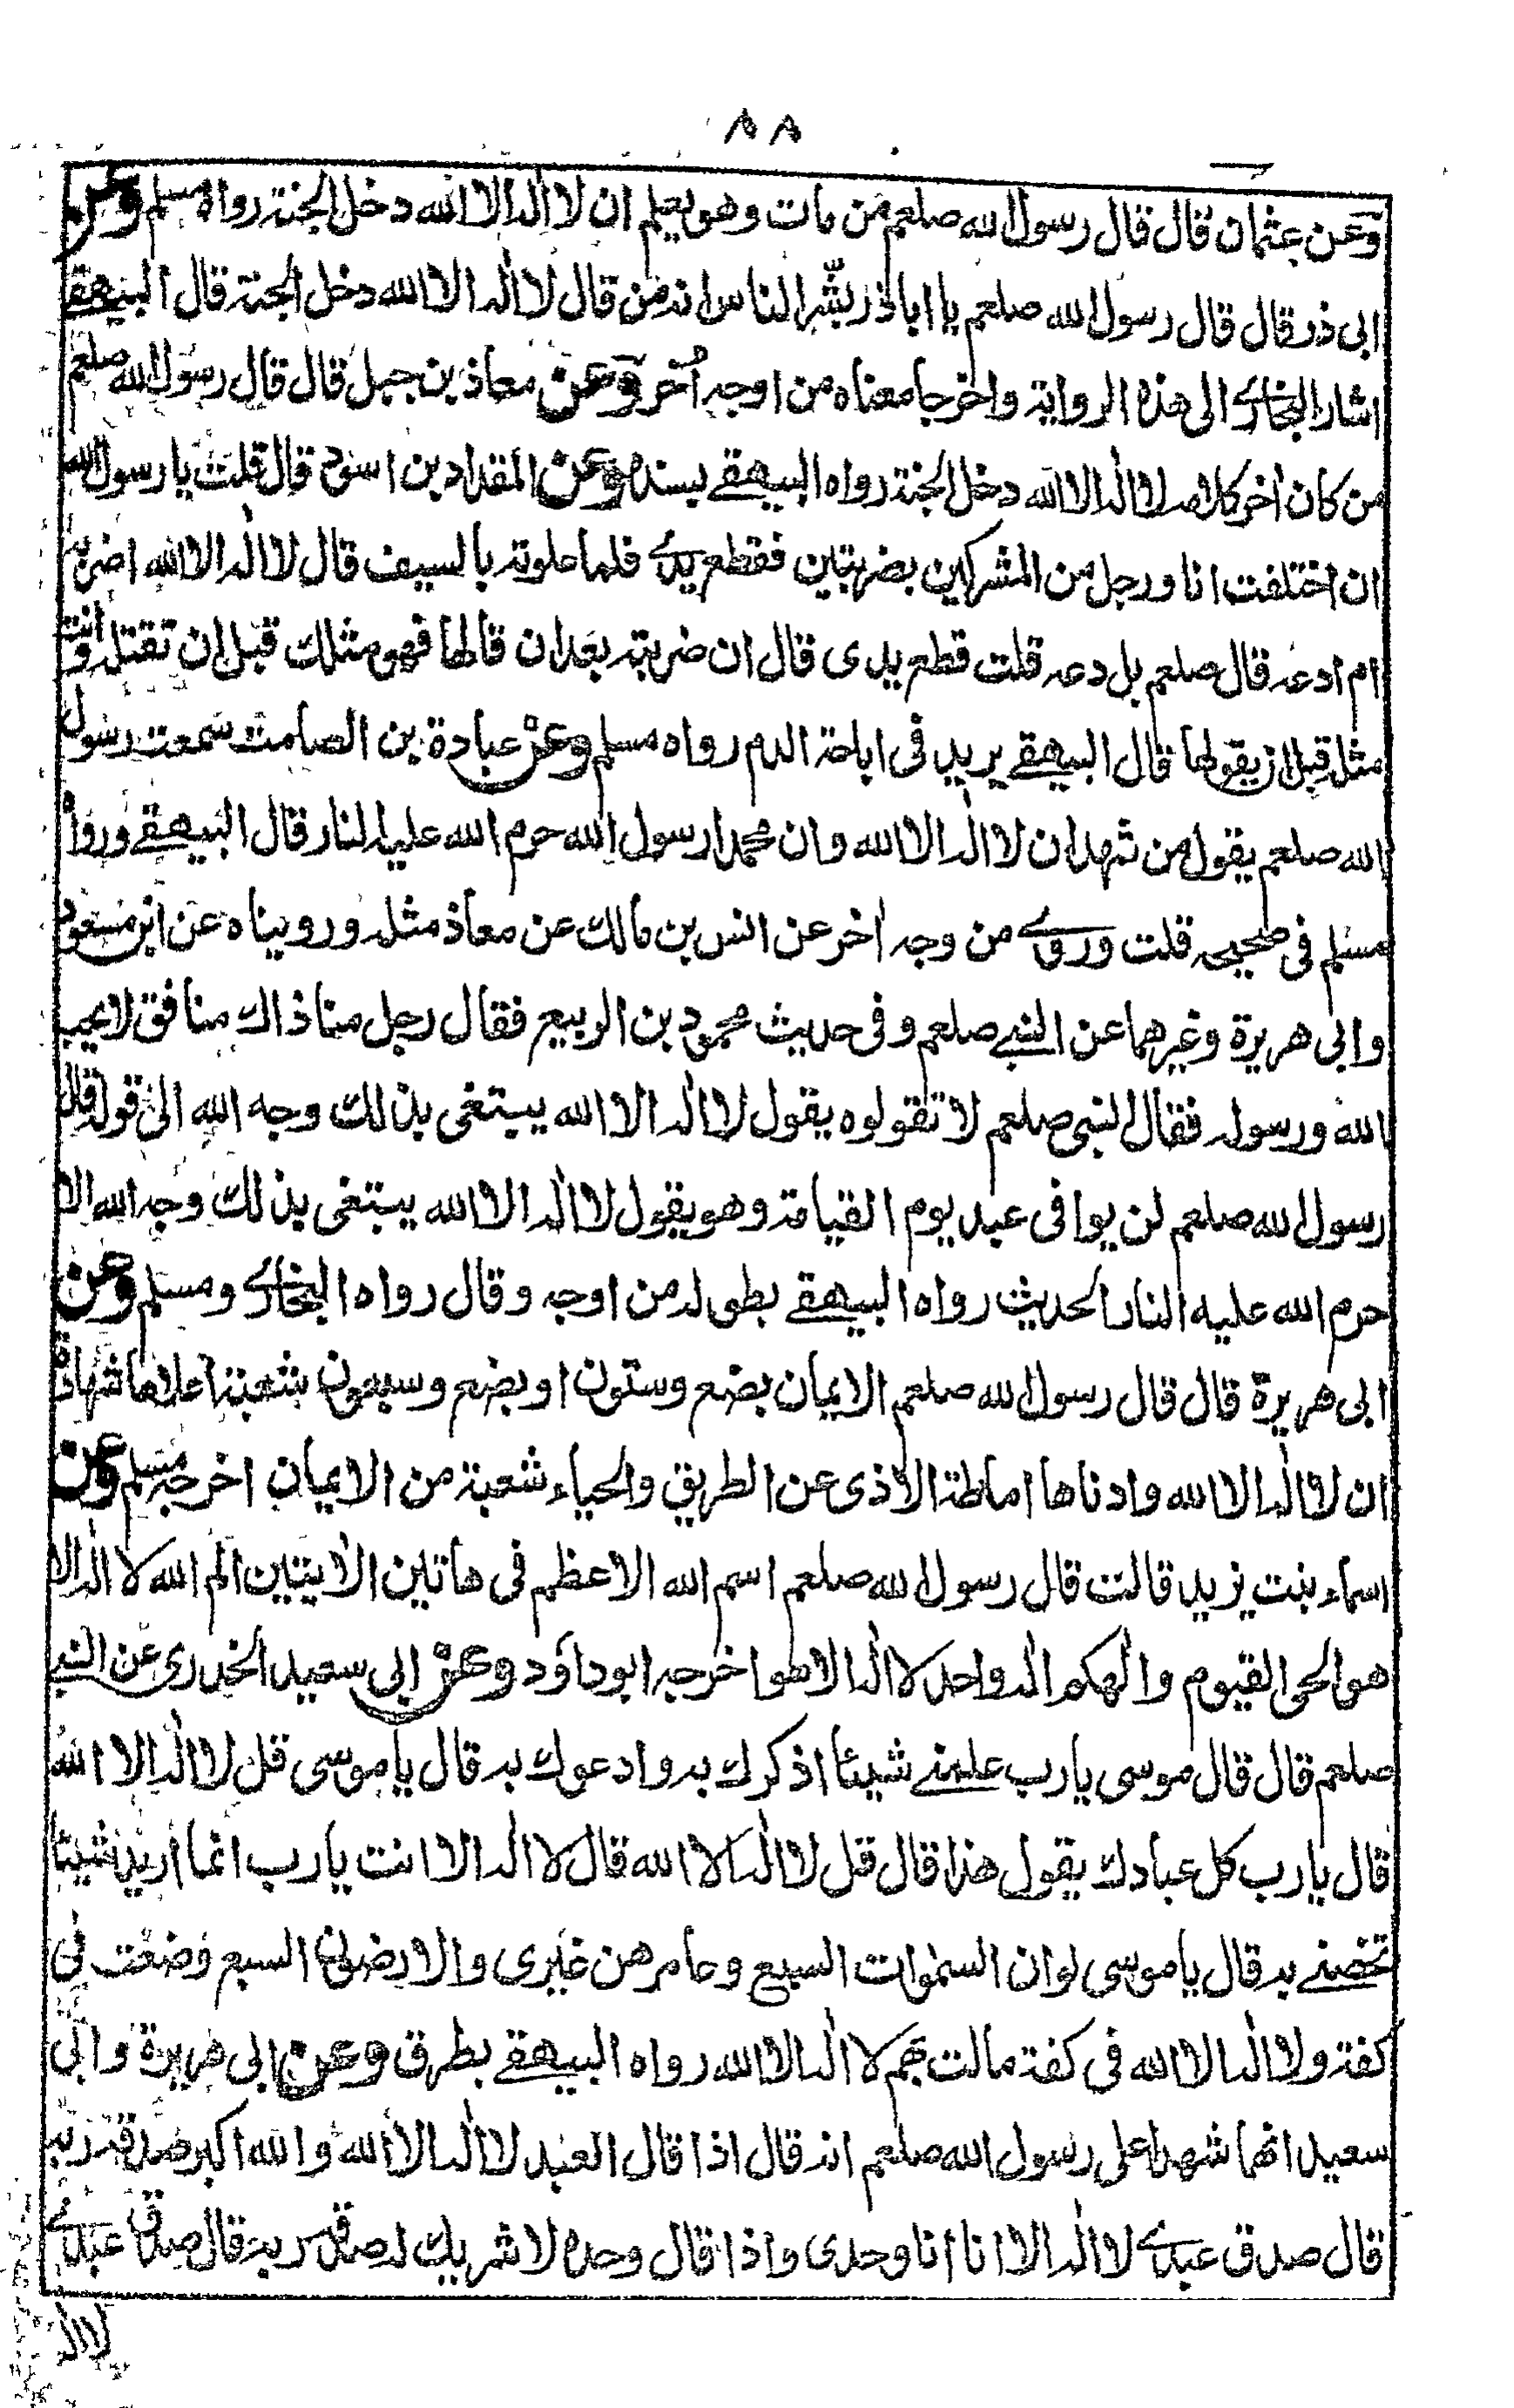 ٨٨
وعن عثمان قال قال رسول الله صلعم من مات وهو يعلم ان لا اله الا الله دخل الجنة رواه مسلم وعن
ابى ذر قال قال رسول الله صلعم يا اباذر بشر الناس انه من قال لا اله الا الله دخل الجنة قال البيهقي
اشار البخاري الى هذه الرواية واخرجا معناه من اوجه اُخر وعن معاذ بن جبل قال قال رسول الله صلعم
من كان اٰخر كلامه لا اله الا الله دخل الجنة رواه البيهقي بسنده وعن المقداد بن اسود قال قلت يا رسول الله
ان اختلفت انا ورجل من المشركين بضربتين فقطع يدي فلما علوته بالسيف قال لا اله الا الله اضربه
ام ادعه قال صلعم بل دعه قلت قطع يدى قال ان ضربته بعد ان قالها فهو مثلك قبل ان تقتله وانت
مثله قبل ان يقولها قال البيهقي يريد فى اباحة الدم رواه مسلم وعن عبادة بن الصامت سمعت رسول
الله صلعم يقول من شهد ان لا اله الا الله وان محمدا رسول الله حرم الله عليه النار قال البيهقي ورواه
مسلم فى صحيحه قلت وروي من وجه اٰخر عن انس بن مالك عن معاذ مثله ورويناه عن ابن مسعود
وابى هريرة وغيرهما عن النبي صلعم وفى حديث محمود بن الربيع فقال رجل منا ذاك منافق لا يحب
الله ورسوله فقال النبى صلعم لا تقولوه يقول لا اله الا الله يبتغى بذلك وجه الله الى قوله قال
رسول الله صلعم لن يوافى عبد يوم القيامة وهو يقول لا اله الا الله يبتغى بذلك وجه الله الا
حرم الله عليه النار الحديث رواه البيهقي بطوله من اوجه وقال رواه البخاري ومسلم وعن
ابى هريرة قال قال رسول الله صلعم الايمان بضع وستون او بضع وسبعون شعبة اعلاها شهادة
ان لا اله الا الله وادناها اماطة الاذى عن الطريق والحياء شعبة من الايمان اخرجه مسلم وعن
اسماء بنت يزيد قالت قال رسول الله صلعم اسم الله الاعظم فى هاتين الاٰيتين الم الله لا اله الا
هو الحى القيوم والٰهكم اله واحد لا اله الا هو اخرجه ابوداؤد وعن ابى سعيد الخدرى عن النبي
صلعم قال قال موسى يارب علمني شيئا اذكرك به وادعوك به قال يا موسى قل لا اله الا الله
قال يارب كل عبادك يقول هذا قال قل لا اله الا الله قال لا اله الا انت يارب انما اريد شيئا
تخصني به قال يا موسى لو ان السمٰوات السبع وعامرهن غيرى والارضين السبع وضعت فى
كفة ولا اله الا الله فى كفة مالت بهم لا اله الا الله رواه البيهقي بطرق وعن ابى هريرة وابى
سعيد انهما شهدا على رسول الله صلعم انه قال اذا قال العبد لا اله الا الله والله اكبر صدقه ربه
قال صدق عبدي لا اله الا انا انا وحدى واذا قال وحده لا شريك له صدقه ربه قال صدق عبدي
لا اله